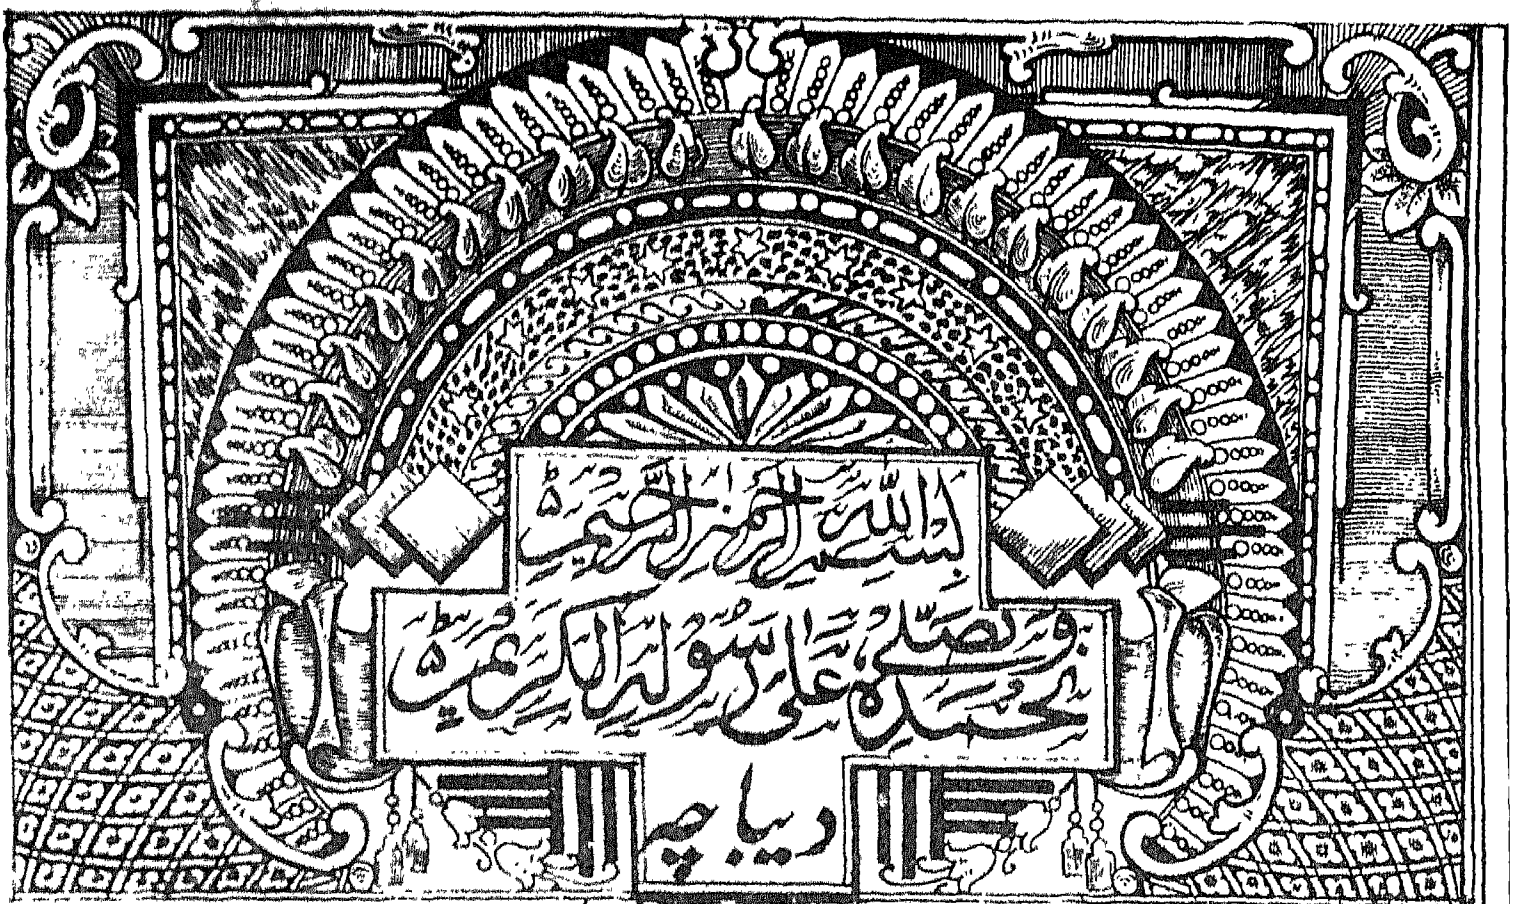 بِسْمِ اللّٰهِ الرَّحْمٰنِ الرَّحِيْمِ ۝
نَحْمَدُهٗ وَ نُصَلِّيْ عَلٰى رَسُوْلِهِ الْكَرِيْمِ ۝
دیباچہ